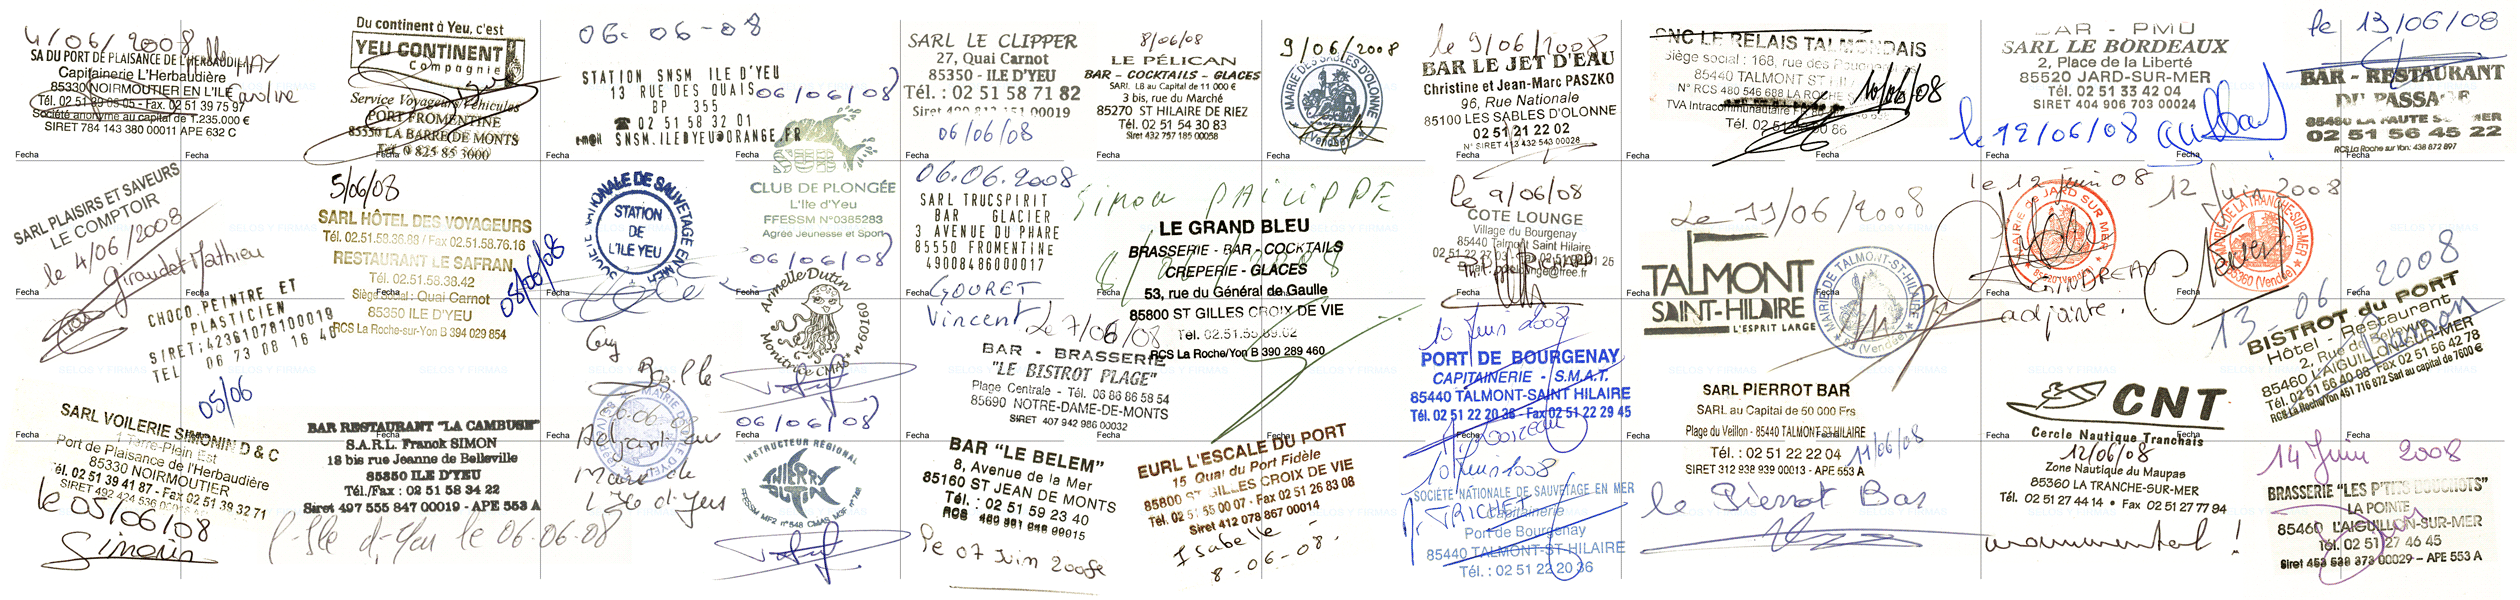 4/06/2008
SA DU PORT DE PLAISANCE DE L'HERBAUDIERE
Capitainerie L'Herbaudière
85330 NOIRMOUTIER EN L'ILE
Tél. 02 51 39 05 05 - Fax. 02 51 39 75 97
Société anonyme au capital de 1.235.000 €
SIRET 784 143 380 00011 APE 632 C
Caroline
Fecha
SARL PLAISIRS ET SAVEURS
LE COMPTOIR
le 4/06/2008
Giraudet Mathieu
CHOCO.PEINTRE ET
PLASTICIEN
SIRET:42361078100019
TEL 06 73 08 16 40
05/06
SARL VOILERIE SIMONIN D & C
1 Terre-Plein Est
Port de Plaisance de l'Herbaudière
85330 NOIRMOUTIER
Tél. 02 51 39 41 87 - Fax 02 51 39 32 71
le 05/06/08
Simonin
Du continent à Yeu, c'est
YEU CONTINENT
Compagnie
Service Voyageurs/Véhicules
PORT FROMENTINE
85550 LA BARRE DE MONTS
Tél. 0 825 85 3000
5/06/08
SARL HÔTEL DES VOYAGEURS
Tél. 02.51.58.36.88 / Fax 02.51.58.76.16
RESTAURANT LE SAFRAN
Tél. 02.51.58.38.42
Siège social : Quai Carnot
85350 ILE D'YEU
RCS La Roche-sur-Yon B 394 029 854
05/06/08
BAR RESTAURANT "LA CAMBUSE"
S.A.R.L. Franck SIMON
18 bis rue Jeanne de Belleville
85350 ILE D'YEU
Tél./Fax : 02 51 58 34 22
Siret 497 555 847 00019 - APE 553 A
l'Ile d'Yeu le 06.06.08
06.06-08
STATION SNSM ILE D'YEU
13 RUE DES QUAIS
BP 355
☎ 02 51 58 32 01
e-m@il SNSM.ILEDYEU@ORANGE.FR
STATION
DE
L'ILE YEU
6.06.08
Adjoint au
Maire de
L'Ile d'Yeu
06/06/08
CLUB DE PLONGÉE
L'Ile d'Yeu
FFESSM N°0385283
Agrée Jeunesse et Sport
06/06/08
Armelle Dutin
Monitrice CMAS* n°09160
06/06/08
INSTRUCTEUR RÉGIONAL
THIERRY
DUTIN
SARL LE CLIPPER
27, Quai Carnot
85350 - ILE D'YEU
Tél. : 02 51 58 71 82
06/06/08
06.06.2008
SARL TRUCSPIRIT
BAR GLACIER
3 AVENUE DU PHARE
85550 FROMENTINE
49008486000017
GOURET
Vincent
Le 7/06/08
BAR - BRASSERIE
"LE BISTROT PLAGE"
Plage Centrale - Tél. 06 86 86 58 54
85690 NOTRE-DAME-DE-MONTS
SIRET 407 942 986 00032
BAR "LE BELEM"
8, Avenue de la Mer
85160 ST JEAN DE MONTS
Tél. : 02 51 59 23 40
Le 07 Juin 2008
8/06/08
LE PÉLICAN
BAR - COCKTAILS - GLACES
SARL LB au Capital de 11 000 €
3 bis, rue du Marché
85270 ST HILAIRE DE RIEZ
Tél. 02 51 54 30 83
Siret 432 757 185 00058
Simon PHILIPPE
LE GRAND BLEU
BRASSERIE - BAR - COCKTAILS
CREPERIE - GLACES
53, rue du Général de Gaulle
85800 ST GILLES CROIX DE VIE
Tél. 02.51.55.89.02
RCS La Roche/Yon B 390 289 460
EURL L'ESCALE DU PORT
15 Quai du Port Fidèle
85800 ST GILLES CROIX DE VIE
Tél. 02 51 55 00 07 - Fax 02 51 26 83 08
Siret 412 078 867 00014
Isabelle
8-06-08.
9/06/2008
MAIRIE DES SABLES D'OLONNE
(Vendée)
le 9/06/2008
BAR LE JET D'EAU
Christine et Jean-Marc PASZKO
96, Rue Nationale
85100 LES SABLES D'OLONNE
02 51 21 22 02
N° SIRET 413 432 543 00028
le 9/06/08
COTE LOUNGE
Village du Bourgenay
85440 Talmont Saint Hilaire
10 Juin 2008
PORT DE BOURGENAY
CAPITAINERIE - S.M.A.T.
85440 TALMONT-SAINT HILAIRE
Tél. 02 51 22 20 36 - Fax 02 51 22 29 45
10 Juin 2008
SOCIÉTÉ NATIONALE DE SAUVETAGE EN MER
TRICHET
Capitainerie
Port de Bourgenay
85440 TALMONT-ST-HILAIRE
Tél. : 02 51 22 20 36
SNC LE RELAIS TALMONDAIS
Siège social : 168, rue des
85440 TALMONT ST
N° RCS 480 546 688 LA ROCHE
TVA Intracommunautaire
10/06/08
Le 11/06/2008
TALMONT
SAINT-HILAIRE
L'ESPRIT LARGE
MAIRIE DE TALMONT-ST-HILAIRE
85 (Vendée)
SARL PIERROT BAR
SARL au Capital de 50 000 Frs
Plage du Veillon - 85440 TALMONT ST HILAIRE
Tél. : 02 51 22 22 04
SIRET 312 938 939 00013 - APE 553 A
11/06/08
le Pierrot Bar
BAR - PMU
SARL LE BORDEAUX
2, Place de la Liberté
85520 JARD-SUR-MER
Tél. 02 51 33 42 04
SIRET 404 906 703 00024
le 12/06/08
le 12 juin 08
MAIRIE DE JARD SUR MER
85520 (Vendée)
adjointe.
12 Juin 2008
MAIRIE DE LA TRANCHE-SUR-MER
85360 (Vendée)
CNT
Cercle Nautique Tranchais
12/06/08
Zone Nautique du Maupas
85360 LA TRANCHE-SUR-MER
Tél. 02 51 27 44 14 • Fax 02 51 27 77 94
monumental !
le 13/06/08
BAR - RESTAURANT
DU PASSAGE
85460 LA FAUTE S/MER
02 51 56 45 22
RCS La Roche sur Yon: 438 872 897
13-06-2008
BISTROT du PORT
Hôtel - Restaurant
2, Rue de Bellevue
85460 L'AIGUILLON-SUR-MER
Tél. 02 51 56 40 08 Fax 02 51 56 42 78
RCS La Roche/Yon 451 716 872 Sarl au capital de 7600 €
14 Juin 2008
BRASSERIE "LES P'TITS BOUCHOTS"
LA POINTE
85460 L'AIGUILLON-SUR-MER
Tél. 02 51 27 46 45
Siret 453 539 373 00029 - APE 553 A